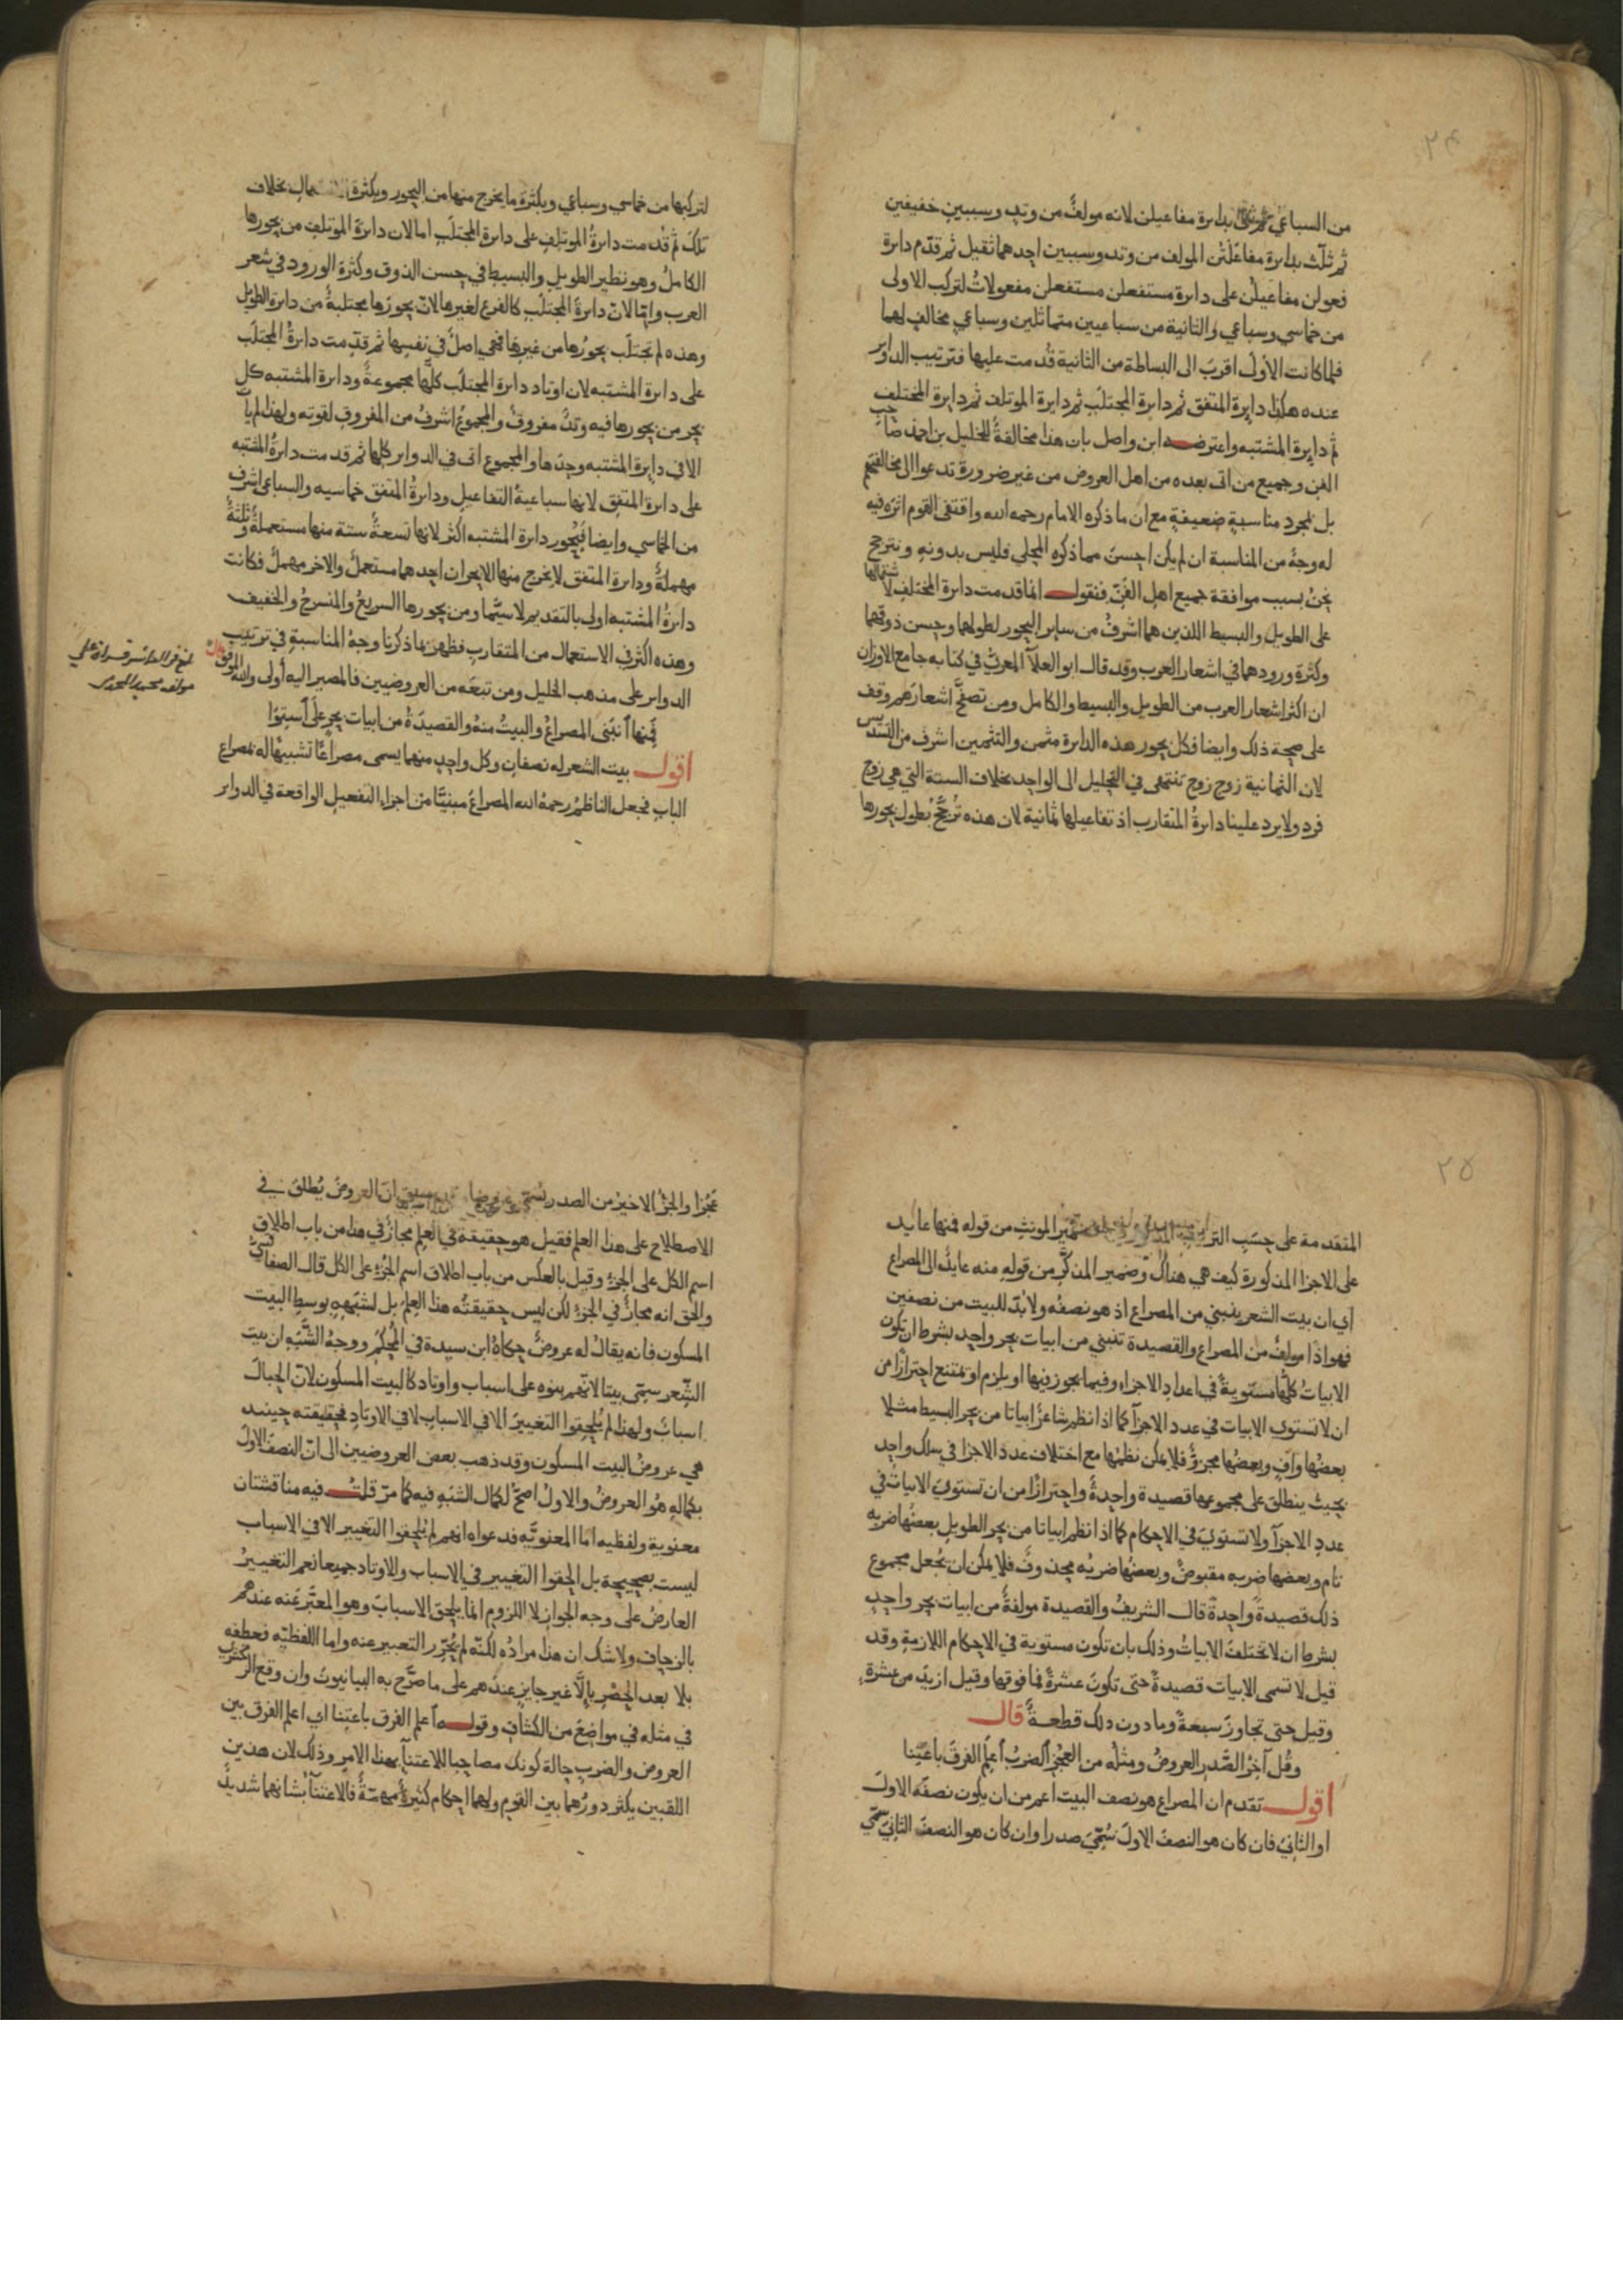 ٢٤
من السباعي ثم ثنى بدايرة مفاعيلن لانه مولفٌ من وتدٍ وسببينِ خفيفين
ثم ثلّث بدايرة مفاعَلَتُن المولف من وتد وسببين احدهما ثقيل ثم قدّم دايرة
فعولن مفاعيلن على دايرة مستفعلن مستفعلن مفعولاتُ لتركب الاولى
من خماسي وسباعي والثانية من سباعيين متماثلين وسباعي مخالفٍ لهما
فلما كانت الاولى اقربَ الى البساطة من الثانية قُدمت عليها فترتيب الدواير
عنده هكذا دايرة المتفق ثم دايرة المجتلَب ثم دايرة الموتلف ثم دايرة المختلف
ثم دايرة المشتبه واعترضـه ابن واصل بان هذا مخالفةٌ للخليل بن احمد صاحب
الفن وجميع من اتى بعده من اهل العروض من غير ضرورة تدعوا الى مخالفتهم
بل لمجرد مناسبةٍ ضعيفةٍ مع ان ما ذكره الامام رحمه الله واقتفى القوم اثرَه فيه
له وجهٌ من المناسبة ان لم يكن احسنَ مما ذكره المحلي فليس بدونهِ ويترجح
بحثُ بسبب موافقة جميع اهل الفنّ فنقول انما قدمت دايرة المختلف لاشتمالها
على الطويل والبسيط اللذين هما اشرفُ من ساير البحور لطولهما وحسن ذوقهما
وكثرة ورودهما في اشعار العرب وقد قال ابو العلآ المعريّ في كتابه جامع الاوزان
ان اكثر اشعار العرب من الطويل والبسيط والكامل ومن تصفَّح اشعارَهم وقف
على صحة ذلك وايضا فكل بحور هذه الدايرة مثمن والتثمين اشرف من التسديس
لان الثمانية زوج زوج تنتهى في التحليل الى الواحد بخلاف الستة التي هي زوج
فرد ولا يرد علينا دايرةُ المتقارب اذ تفاعيلها ثمانية لان هذه تُرجَّحُ بطول بحورها
لتركبها من خماسي وسباعي وبكثرة ما يخرج منها من البحور وبكثرة بخلاف
تلك ثم قُدمت دايرةُ الموتلِف على دايرة المجتلَب اما لان دايرة الموتلف من بحورها
الكاملُ وهو نظير الطويل والبسيط في حسن الذوق وكثرة الورود في شعر
العرب وامّا لانّ دايرةَ المجتلَب كالفرع لغيرها لانّ بحورَها مجتلبةٌ من دايرة الطويل
وهذه لم تجتلَب بحورُها من غيرها فهي اصلٌ في نفسها ثم قدّمت دايرةُ المجتلَب
على دايرة المشتبه لان اوتاد دايرة المجتلَب كلَّها مجموعةٌ ودايرة المشتبه كل
بحر من بحورها فيه وتدٌ مفروقٌ والمجموعُ اشرفُ من المفروق لقوته ولهذا لم يات
الا في دايرة المشتبه وحدَها والمجموع اتى في الدواير كلها ثم قدمت دايرةُ المشتبه
على دايرة المتفق لانها سباعيةُ التفاعيل ودايرةُ المتفق خماسيه والسباعي اشرف
من الخماسي وايضا فبُحُور دايرة المشتبه اكثر لانها تسعةٌ ستة منها مستعملةٌ وثلثةٌ
مهملةٌ ودايرة المتفق لا يخرج منها الا بحران احدهما مستعملٌ والاخر مهملٌ فكانت
دايرةُ المشتبه اولى بالتقديم لا سيَّما ومن بحورها السريعُ والمنسرحُ والخفيف
وهذه اكثر في الاستعمال من المتقارب فظهر بما ذكرنا وجهُ المناسبةِ في ترتيب
الدواير على مذهب الخليل ومن تبعَه من العروضيين فالمصير اليه أولى والله الموفق قال
مولفه محمد
فَمِنها اَنبَنَى المصراعُ والبيتُ منهُ والقصيدَةُ من ابيات بحرٍ على اَستِوا
اقول بيت الشعر له نصفان وكل واحدٍ منهما يسمى مصراعًا تشبيهًا له بمصراع
الباب فجعل الناظمُ رحمهُ الله المصراعَ مبنيًّا من اجزاء التفعيل الواقعة في الدواير
٢٥
المتقدمة على حسَبِ ضمير المونث من قوله فمنها عايد
على الاجزا المذكورة كيف هي هناك وضمير المذكَّر من قوله منه عايدٌ الى المصراع
اي ان بيت الشعر ينبني من المصراع اذ هو نصفُه ولا بُدّ للبيت من نصفين
فهو اذًا مولفٌ من المصراع والقصيدة تنبني من ابيات بحر واحدٍ بشرط ان تكون
الابياتُ كلُّها مستويةً في اعدادِ الاجزاءِ وفيما يجوز فيها او يلزم او يمتنع احترازًا من
ان لا تستوي الابيات في عدد الاجزآ كما اذا نظم شاعرٌ ابياتا من بحر البسيط مثلا
بعضُها وافٍ وبعضُها مجزوٌّ فلا يمكن نظمُها مع اختلاف عدد الاجزا في سلك واحدٍ
بحيث ينطلق على مجموعها قصيدة واحدةٌ واحترازًا من ان تستويَ الابياتُ في
عددِ الاجزآ ولا تستويَ في الاحكام كما اذا نظم ابياتا من بحر الطويل بعضُها ضربه
تام وبعضها ضربه مقبوضٌ وبعضُها ضربُه محذوفٌ فلا يمكن ان يُجعل مجموع
ذلك قصيدةً واحدةً قال الشريفُ والقصيدة مولفةٌ من ابيات بحر واحدٍ
بشرط ان لا تختلفَ الابياتُ وذلك بان تكون مستوية في الاحكام اللازمةِ وقد
قيل لا تسمى الابيات قصيدةً حتى تكونَ عشرةً فما فوقها وقيل ازيدَ من عشرةٍ
وقيل حتى تجاوزَ سبعةً وما دون ذلك قطعةٌ قال
وقُل آخِرُ الصَّدرِ العروضُ ومثلُه من العجُزِ الضربُ اَعلمِ الفرقَ باَعتِنا
اقول تقدم ان المصراع هو نصف البيت اعم من ان يكون نصفَه الاولَ
او الثانيَ فان كان هو النصفَ الاولَ سُمّيَ صدرا وان كان هو النصفَ الثانيَ سمّي
عَجُزا والجزُ الاخيرُ من الصدر يُسمّى عروضا سبق انّ العروضَ يُطلَق في
الاصطلاح على هذا العلم فقيل هو حقيقة في العلم مجازٌ في هذا من باب اطلاق
اسم الكل على الجزءِ وقيل بالعكس من باب اطلاق اسم الجزءِ على الكل قال الصفاقسيّ
والحق انه مجازٌ في الجزءِ لكن ليس حقيقتُه هذا العِلمَ بل لشبَهِهِ بوسطِ البيت
المسكون فانه يقالُ له عروضٌ حكاهُ ابن سيدة في المُحكَم ووجهُ الشَّبَه ان بيت
الشِّعر سمّي بيتا لانّهم بنوه على اسباب واوتاد كالبيت المسكون لانّ الحِبالَ
اسبابٌ ولهذا لم يُلحِقوا التغييرَ الا في الاسبابِ لا في الاوتادِ فحقيقته حينيد
هي عروضُ البيت المسكون وقد ذهب بعض العروضيين الى انّ النصفَ الاولَ
بكمالهِ هُو العروضُ والاولُ اصحُّ لكمال الشبَهِ فيه كما مرّ قلتُ فيه مناقشتان
معنوية ولفظيه امّا المعنويَّه فدعواه انهم لم يُلحِقوا التغيير الا في الاسباب
ليست بصحيحة بل الحقوا التغيير في الاسباب والاوتاد جميعا نعم التغييرُ
العارضُ على وجه الجواز لا اللزوم انما يلحق الاسبابَ وهو المعبَّر عَنه عندهم
بالزحاف ولا شك ان هذا مرادُه لكنّه لم يُحَرِّر التعبير عنه واما اللفظيّه فعطفُه
بلا بعد الحصر بالَّا غير جايزٍ عندهم على ما صرَّح به البيانيونَ وان وقع الزمخشريُّ
في مثله في مواضعَ من الكشافِ وقولـه اعلم الفرق باعتِنا اي اعلم الفرق بين
العروض والضرب حالة كونك مصاحبا للاعتنآ بهذا الامر وذلك لان هذين
اللقبين يكثر دورُهما بين القوم ولهما احكام كثيرةٌ مهمّةٌ فالاعتنآ بشانهما شديدٌ